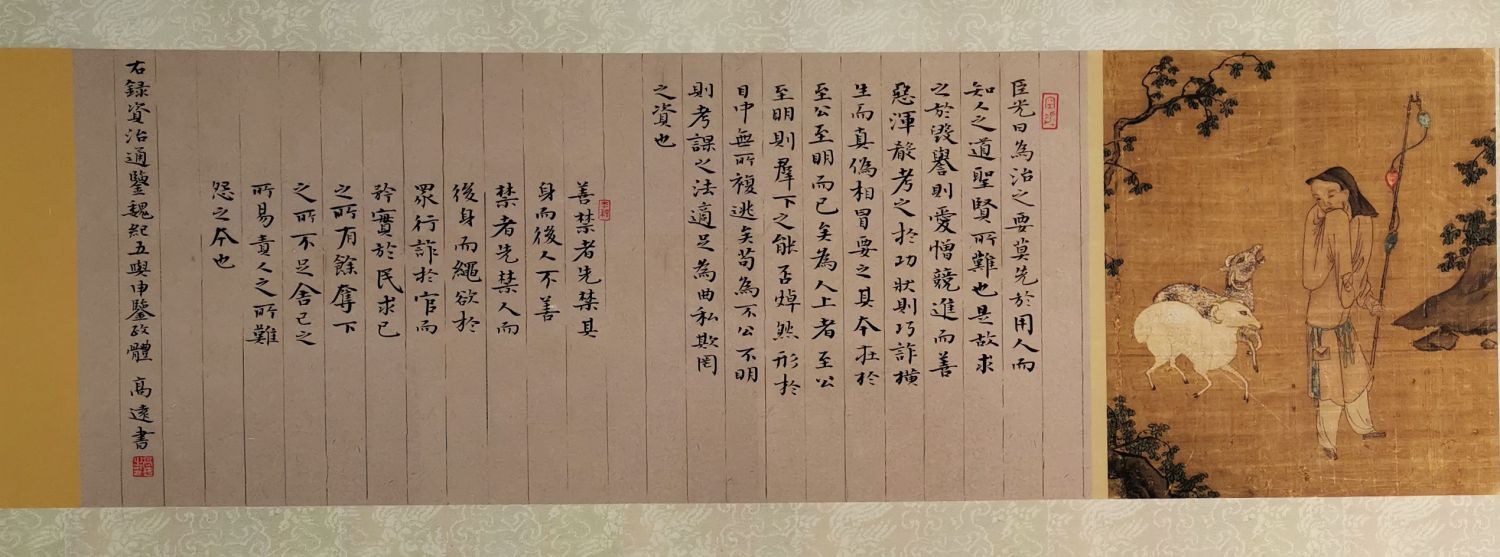 臣光曰為治之要莫先於用人而
知人之道聖賢所難也是故求
之於毀譽則愛憎競進而善
惡渾殽考之於功狀則巧詐橫
生而真偽相冒要之其本在於
至公至明而已矣為人上者至公
至明則羣下之能否焯然形於
目中無所複逃矣苟為不公不明
則考課之法適足為曲私欺罔
之資也
善禁者先禁其
身而後人不善
禁者先禁人而
後身而繩欲於
眾行詐於官而
矜實於民求己
之所有餘奪下
之所不足舍己之
所易責人之所難
怨之本也
右錄資治通鑒魏紀五與申鑒政體 高遠書